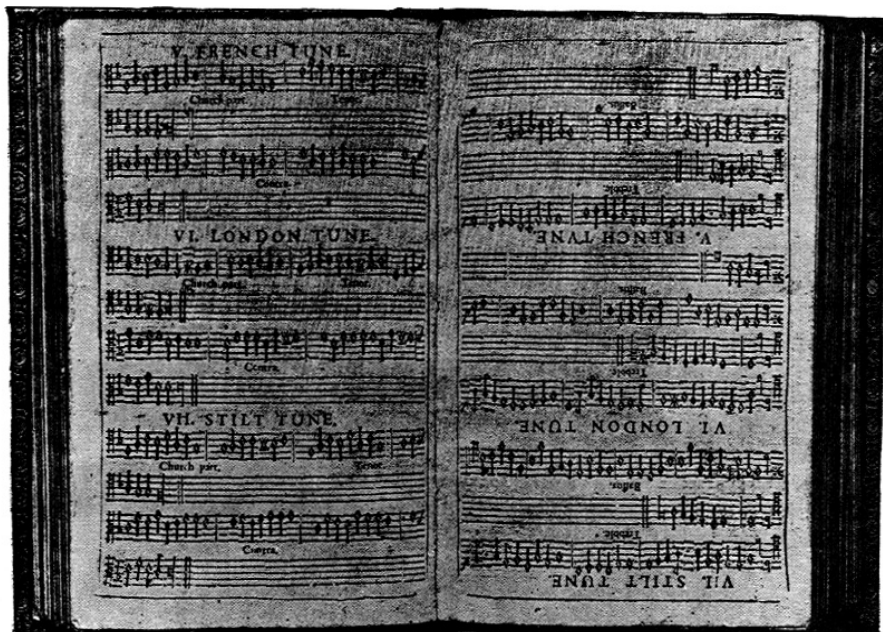 V. FRENCH TUNE.
Church part. Tenor.
Contra.
VI. LONDON TUNE.
Church part. Tenor.
Contra.
VII. STILT TUNE.
Church part. Tenor.
Contra.
VII. STILT TUNE
Treble.
Bassus.
VI. LONDON TUNE
Treble.
Bassus.
V. FRENCH TVNE
Treble.
Bassus.